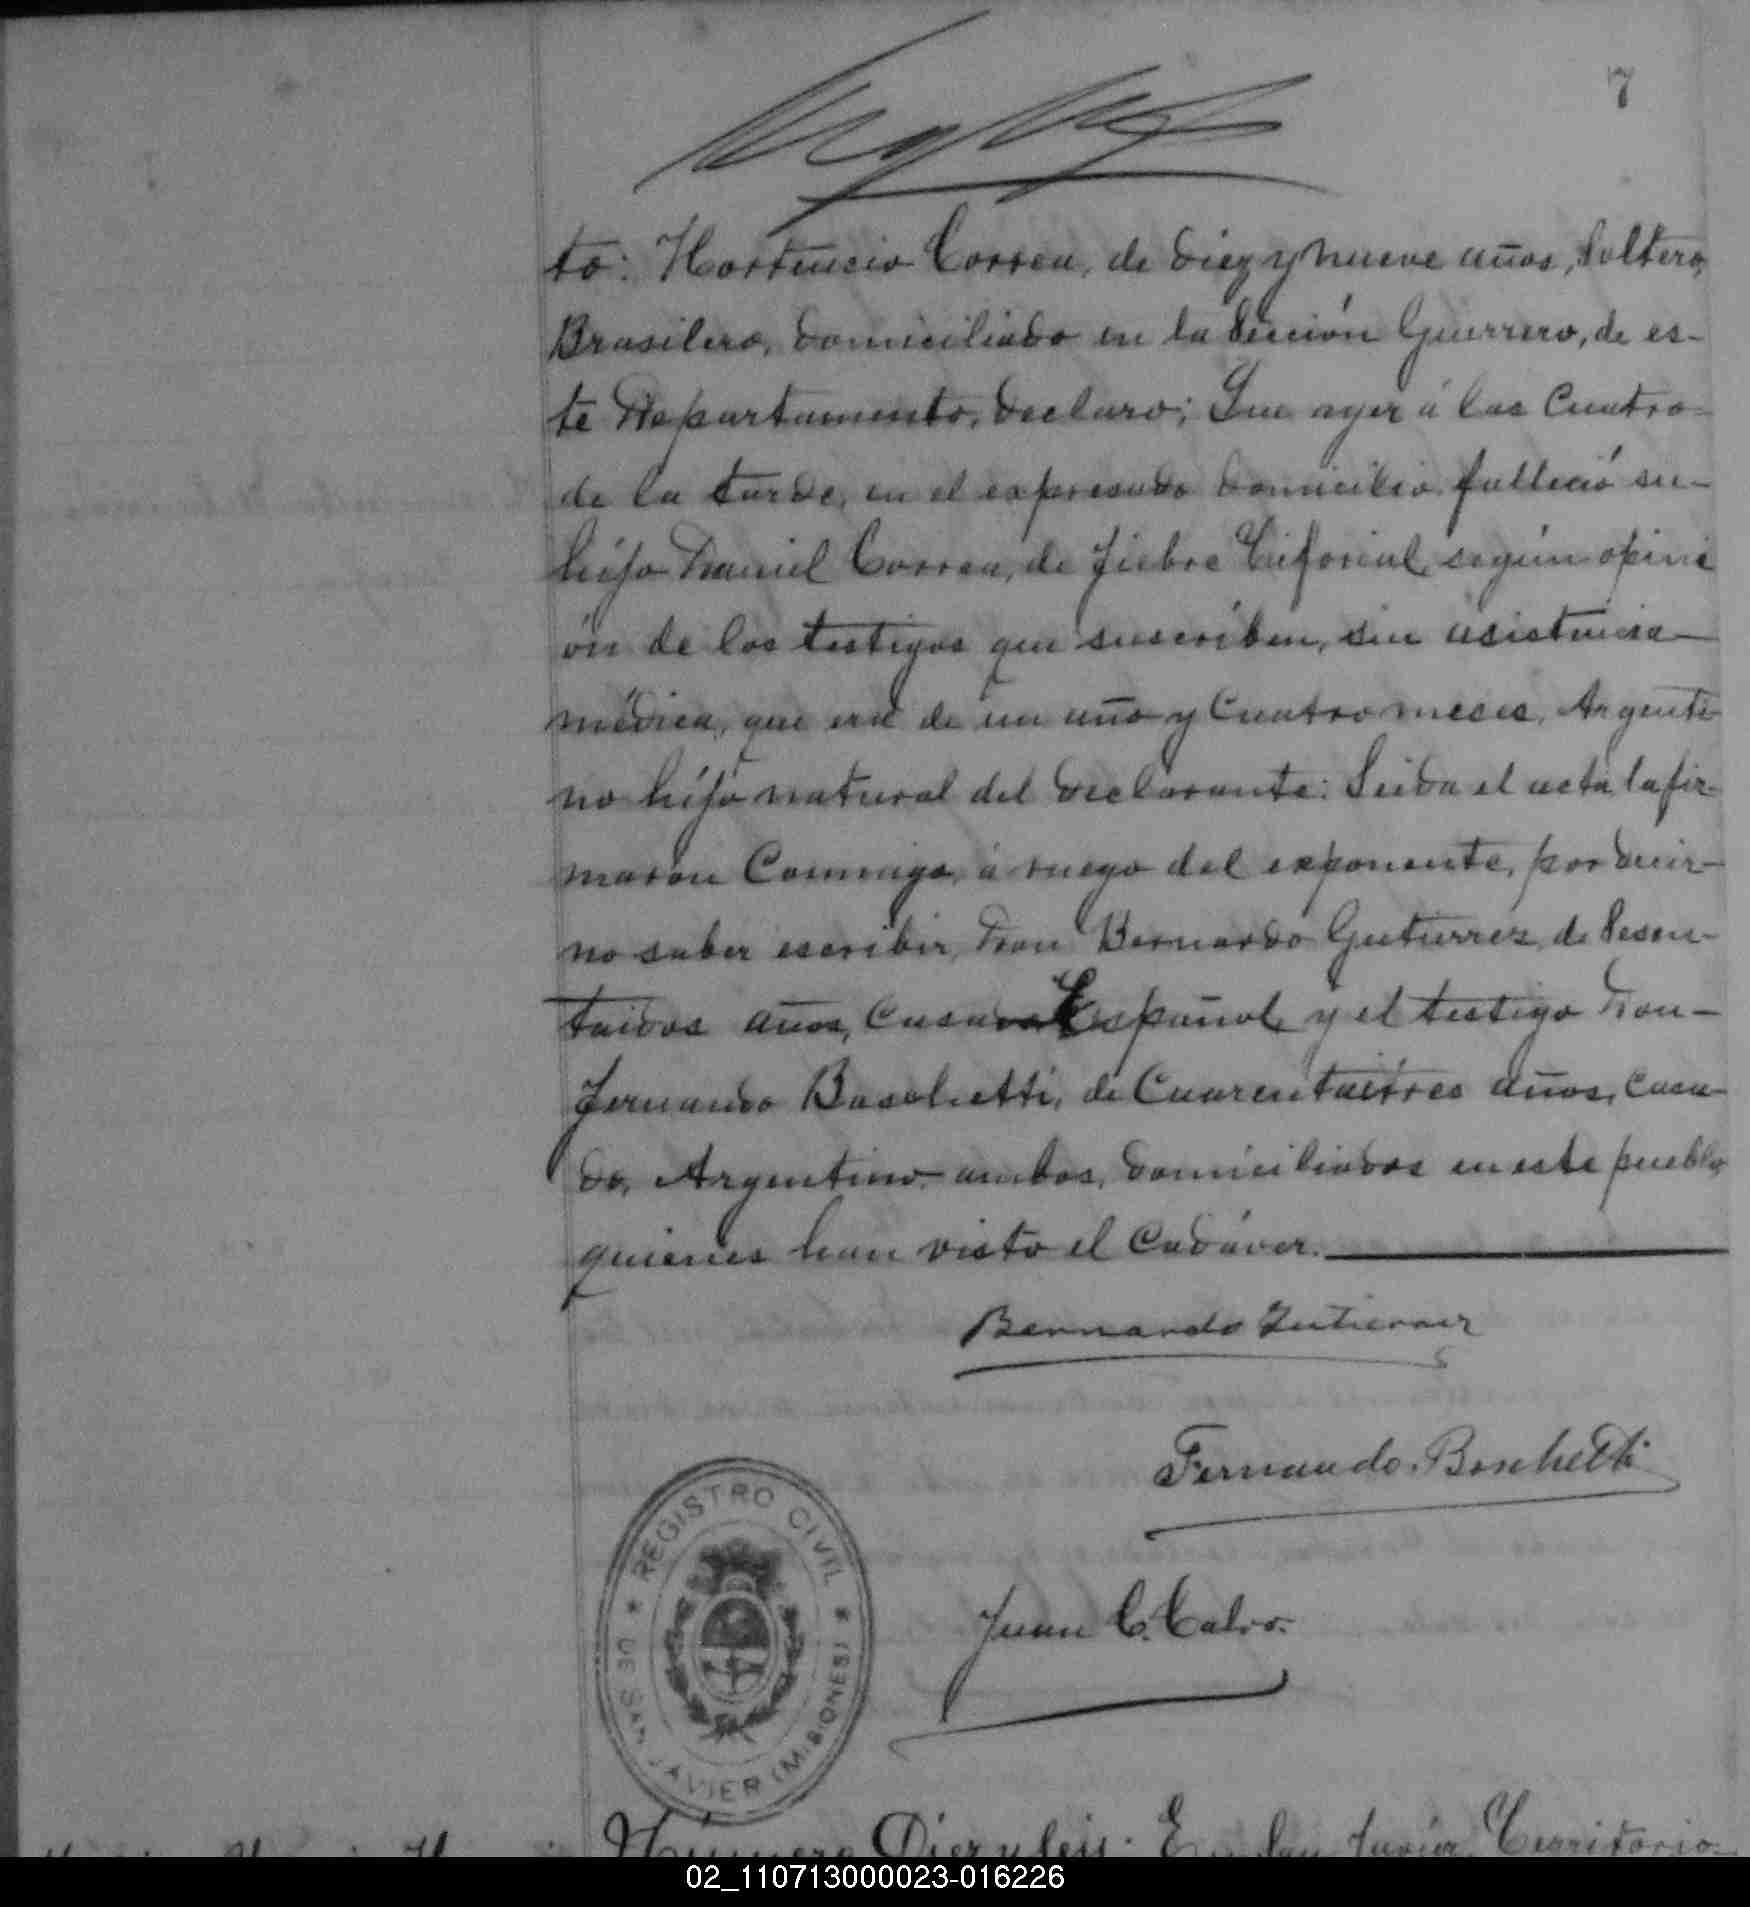 7
to: Hortencio Correa, de diez y nueve años, Soltero,
Brasilero, domiciliado en la Sección Guerrero, de es-
te Departamento, declaro; Que ayer á las Cuatro-
de la tarde, en el expresado domicilio falleció su-
hijo Daniel Correa, de fiebre Tiforial, según opini
ón de los testigos que suscriben, sin asistencia-
médica, que era de un año y Cuatro meses, Argenti-
no hijo natural del declarante: Leida el acta, la fir-
maron Conmigo, á ruego del exponente, por decir-
no saber escribir, Don Bernardo Gutierrez, de Sesen-
taidos años, Casado Español, y el testigo Don-
Fernando Boschetti, de Cuarentaitres años, Casa-
do, Argentino ambos, domiciliados en este pueblo,
quienes han visto el Cadáver.
Bernardo Gutierrez
Fernando Boschetti
REGISTRO CIVIL
DE SAN JAVIER (MISIONES)
Juan C. Calvo.
Número Diez y Seis: En San Javier, Territorio-
02_110713000023-016226